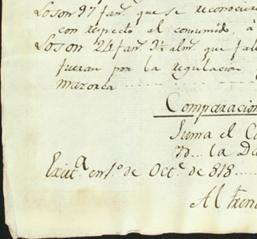 Lo son 97 fan.s que se reconocie
con respecto al consumido, à
Lo son 24 fan.s 3½ alm.s que fal
fueron por la regulacion
mazorca
Comparacion
Suma el Ca
Y... la Da
Exist.a en 1.º de Oct.e de 818
Al fren